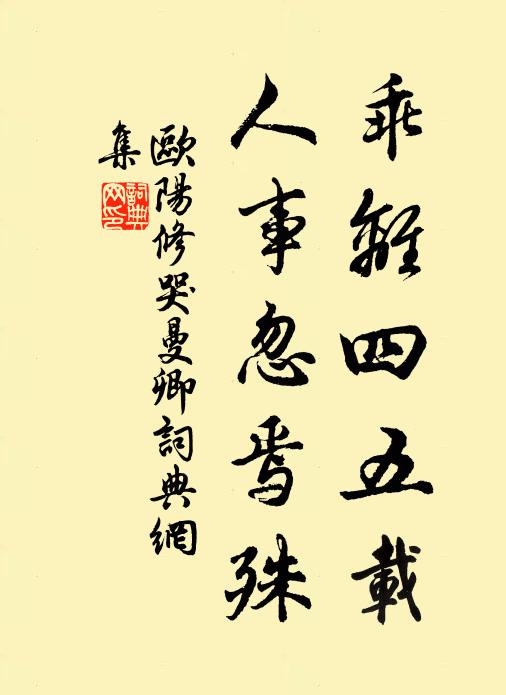 乖離四五載
人事忽焉殊
歐陽修哭曼卿詞典網
集
詞典
网印